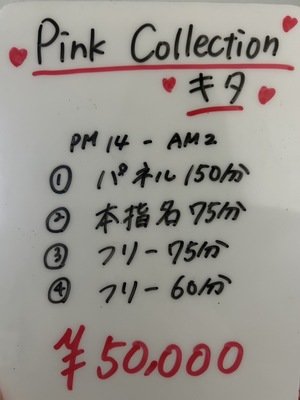 Pink Collection
キタ
PM 14 - AM2
① パネル 150分
② 本指名 75分
③ フリー 75分
④ フリー 60分
¥50,000